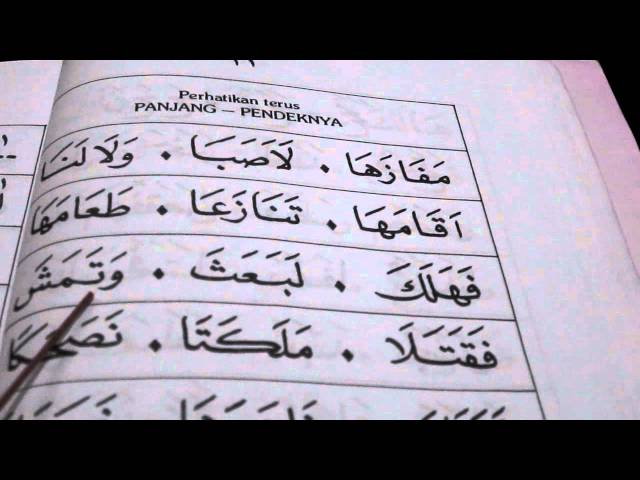 ١١
Perhatikan terus
PANJANG – PENDEKNYA
مَفَازَهَا . لَاَصَبَا . وَلَا لَنَا
اَقَامَهَا . تَنَازَعَا . طَعَامَهَا
فَهَلَكَ . لَبَعَثَ . وَتَمَشَ
فَقَتَلَا . مَلَكَتَا . نَصَحَكَا